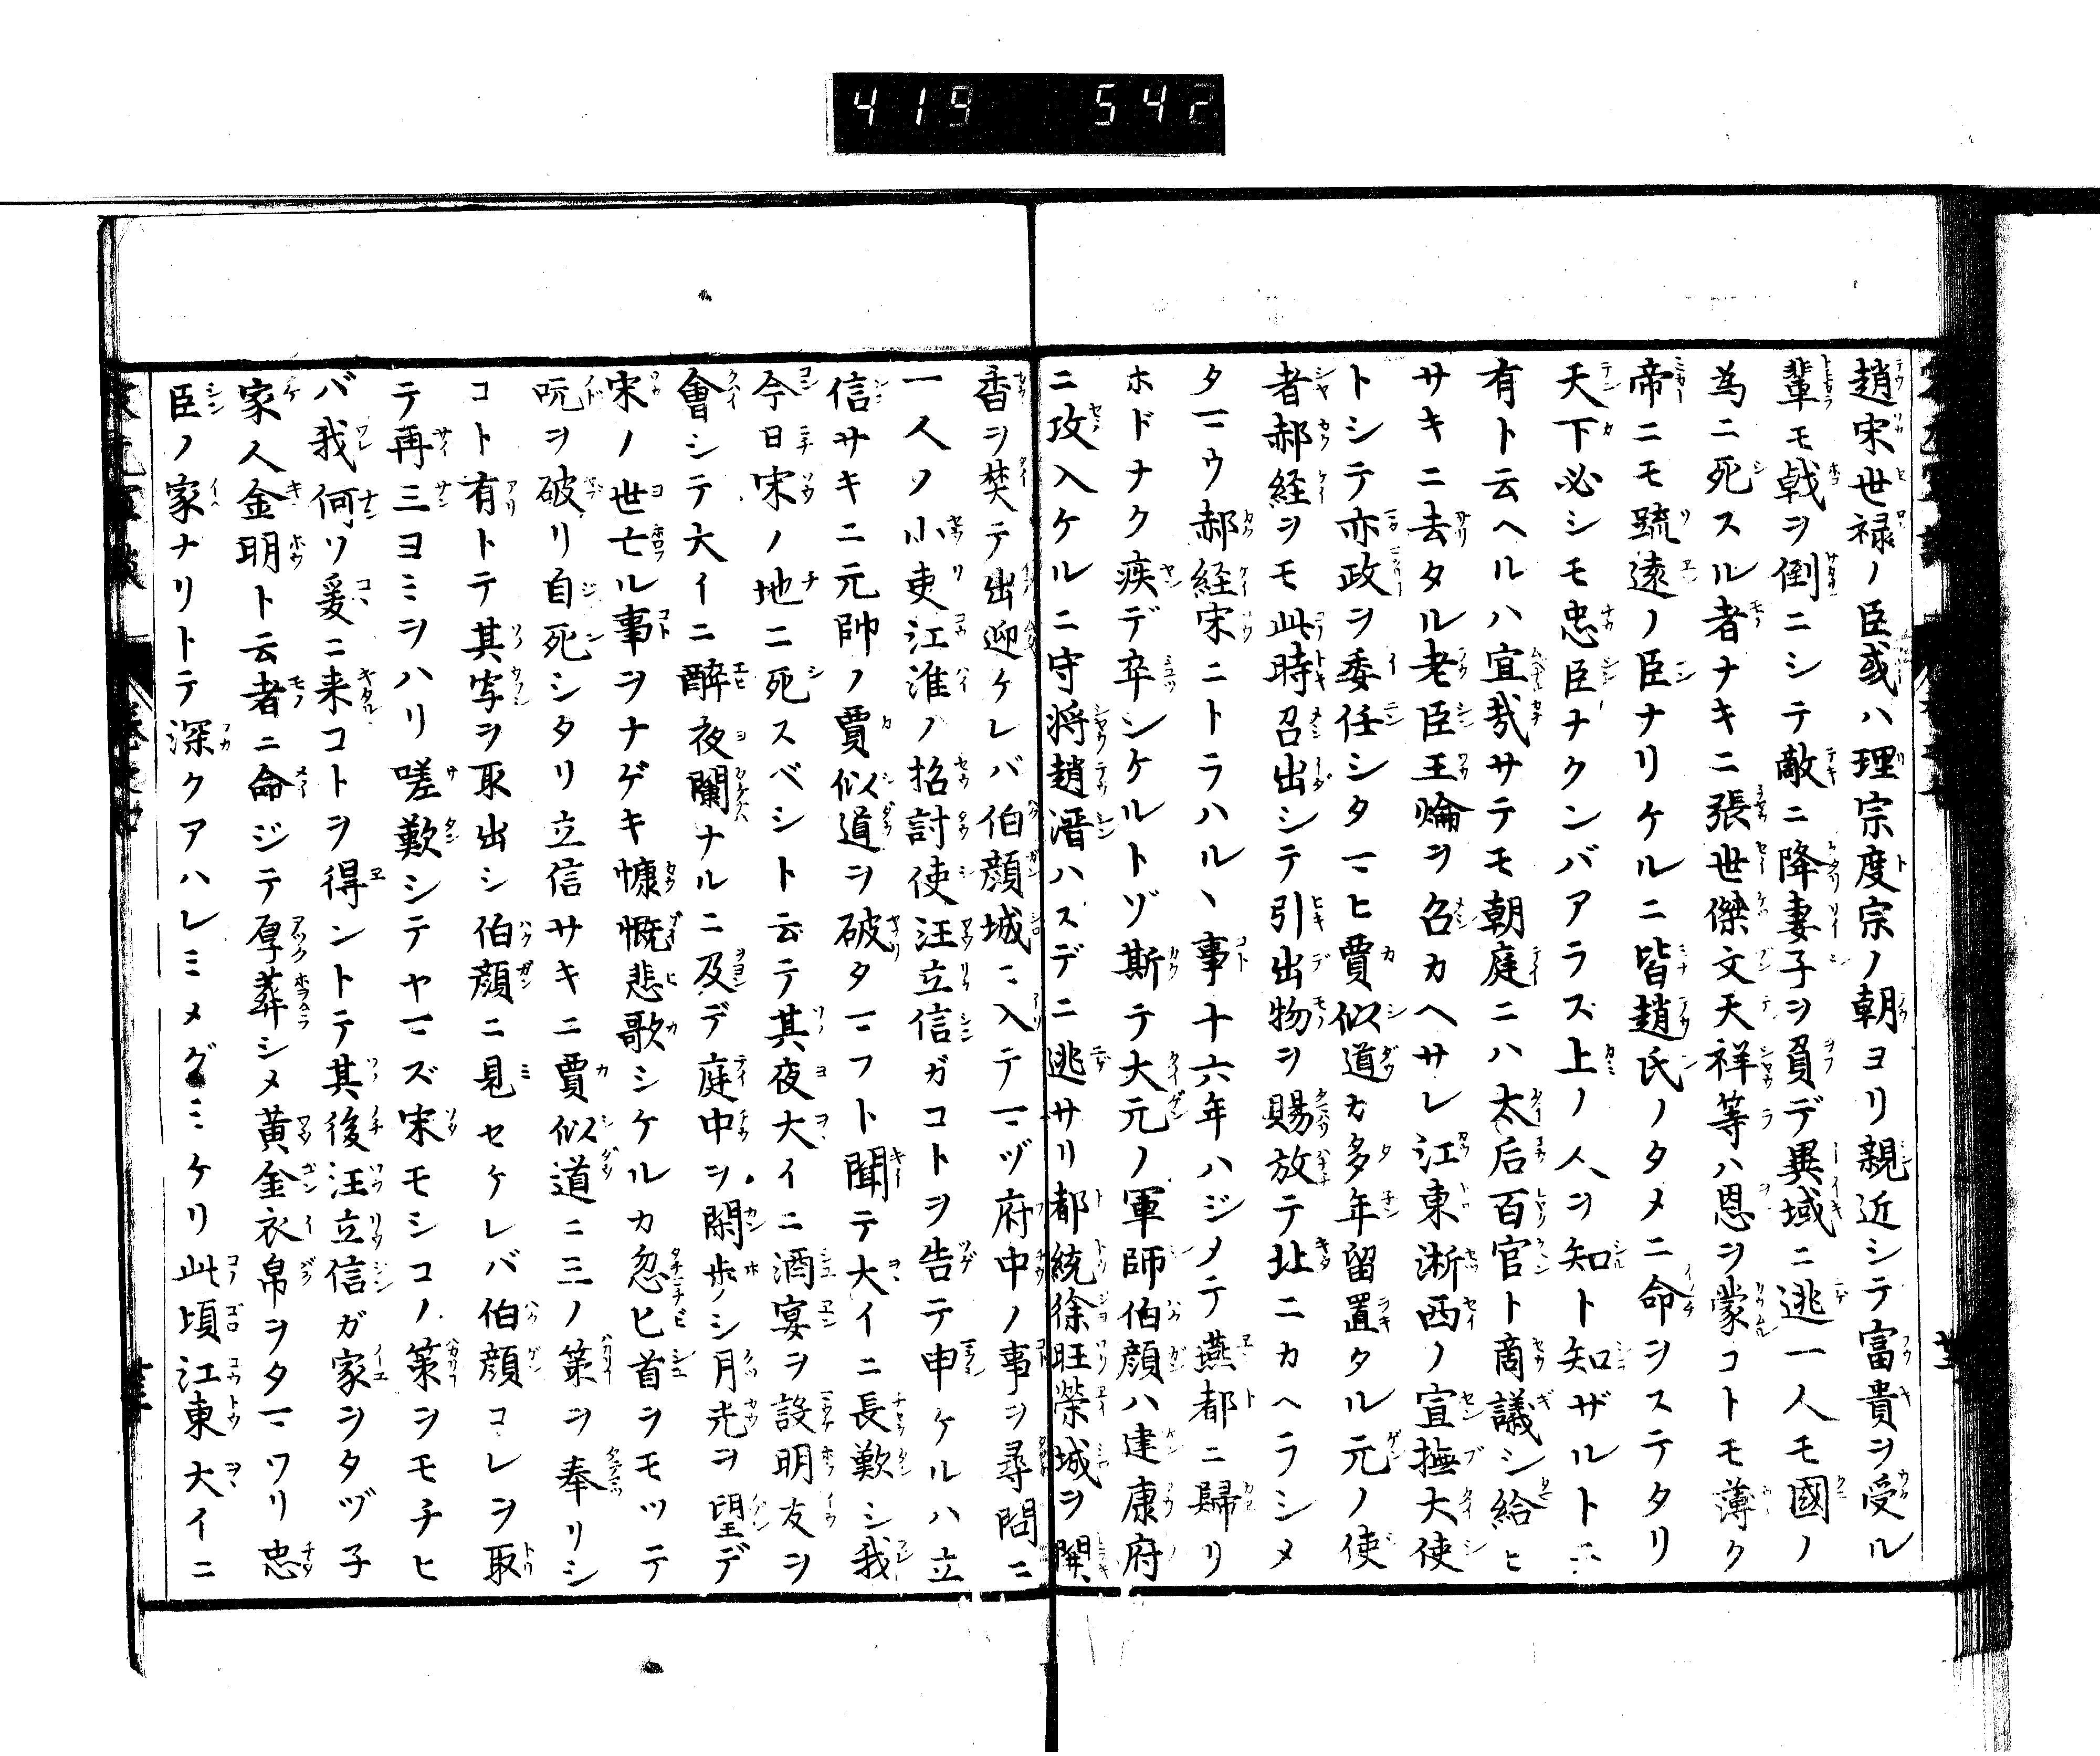 419 542
趙宋世禄ノ臣或ハ理宗度宗ノ朝ヨリ親近シテ富貴ヲ受ル
輩モ戟ヲ倒ニシテ敵ニ降妻子ヲ負デ異域ニ逃一人モ國ノ
為ニ死スル者ナキニ張世傑文天祥等ハ恩ヲ蒙コトモ薄ク
帝ニモ踈遠ノ臣ナリケルニ皆趙氏ノタメニ命ヲステタリ
天下必シモ忠臣ナクンバアラズ上ノ人ヲ知ト知ザルトニ
有ト云ヘルハ宜哉サテモ朝庭ニハ太后百官ト商議シ給ヒ
サキニ去タル老臣王爚ヲ召カヘサレ江東淅西ノ宣撫大使
トシテ亦政ヲ委任シタマヒ賈似道カ多年留置タル元ノ使
者郝経ヲモ此時召出シテ引出物ヲ賜放テ北ニカヘラシメ
タマウ郝経宋ニトラハルヽ事十六年ハジメテ燕都ニ歸リ
ホドナク疾デ卒シケルトゾ斯テ大元ノ軍師伯顔ハ建康府
ニ攻入ケルニ守将趙溍ハスデニ逃サリ都統徐旺榮城ヲ開
香ヲ焚テ出迎ケレバ伯顔城ニ入テマヅ府中ノ事ヲ尋問ニ
一人ノ小吏江淮ノ招討使汪立信ガコトヲ告テ申ケルハ立
信サキニ元帥ノ賈似道ヲ破タマフト聞テ大イニ長歎シ我
今日宋ノ地ニ死スベシト云テ其夜大イニ酒宴ヲ設明友ヲ
會シテ大イニ醉夜闌ナルニ及デ庭中ヲ閑歩シ月光ヲ望デ
宋ノ世亡ル事ヲナゲキ慷慨悲歌シケルカ忽ヒ首ヲモッテ
吭ヲ破リ自死シタリ立信サキニ賈似道ニ三ノ策ヲ奉リシ
コト有トテ其字ヲ取出シ伯顔ニ見セケレバ伯顔コレヲ取
テ再三ヨミヲハリ嗟歎シテヤマズ宋モシコノ策ヲモチヒ
バ我何ソ爰ニ来コトヲ得ントテ其後汪立信ガ家ヲタヅ子
家人金明ト云者ニ命ジテ厚葬シメ黄金衣帛ヲタマワリ忠
臣ノ家ナリトテ深クアハレミメグミケリ此頃江東大イニ